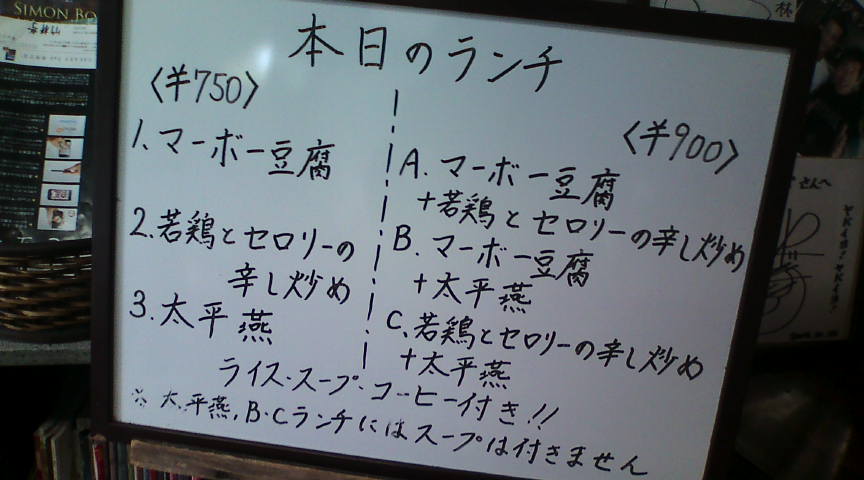 SIMON BO
本日のランチ
〈¥750〉
1. マーボー豆腐
2. 若鶏とセロリーの
辛し炒め
3. 太平燕
〈¥900〉
A. マーボー豆腐
+若鶏とセロリーの辛し炒め
B. マーボー豆腐
+太平燕
C. 若鶏とセロリーの辛し炒め
+太平燕
ライス・スープ・コーヒー付き!!
※ 太平燕, B・Cランチにはスープは付きません
林
さんへ